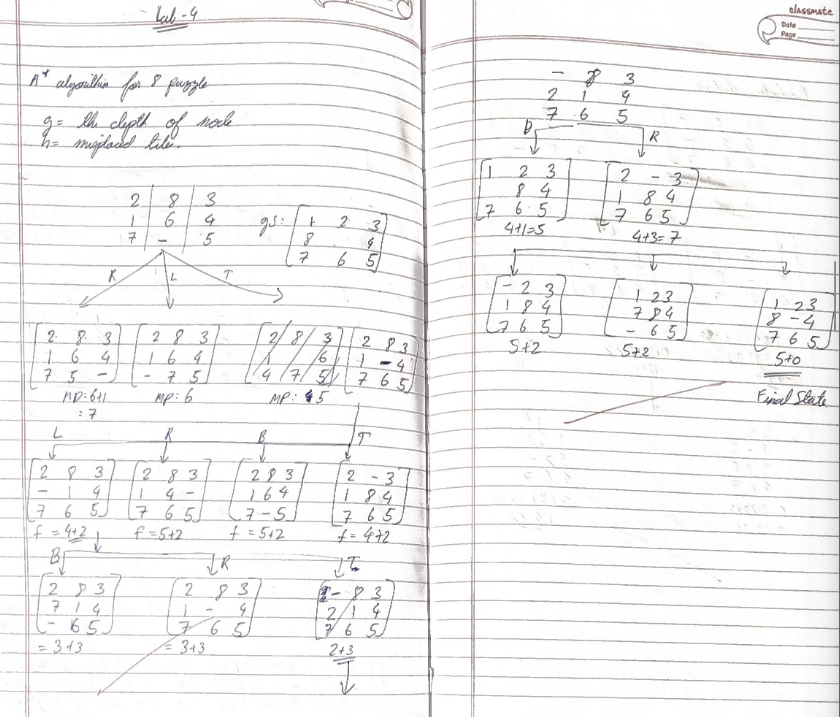 Lab-4
A* algorithm for 8 puzzle
g= the depth of node
h= misplaced tiles.
2 8 3
1 6 4
7 - 5
gs: 1 2 3
8 4
7 6 5
R L T
2 8 3
1 6 4
7 5 -
MP: 6+1
= 7
2 8 3
1 6 4
- 7 5
MP: 6
2 8 3
1 6
4 7 5
MP: 5
2 8 3
1 - 4
7 6 5
L R B T
2 8 3
- 1 4
7 6 5
f = 4+2
2 8 3
1 4 -
7 6 5
f = 5+2
2 8 3
1 6 4
7 - 5
f = 5+2
2 - 3
1 8 4
7 6 5
f = 4+2
B R T
2 8 3
7 1 4
- 6 5
= 3+3
2 8 3
1 - 4
7 6 5
= 3+3
- 8 3
2 1 4
7 6 5
2+3
classmate
Date
Page
- 8 3
2 1 4
7 6 5
D R
1 2 3
8 4
7 6 5
4+1=5
2 - 3
1 8 4
7 6 5
4+3=7
- 2 3
1 8 4
7 6 5
5+2
1 2 3
7 8 4
- 6 5
5+2
1 2 3
8 - 4
7 6 5
5+0
Final State